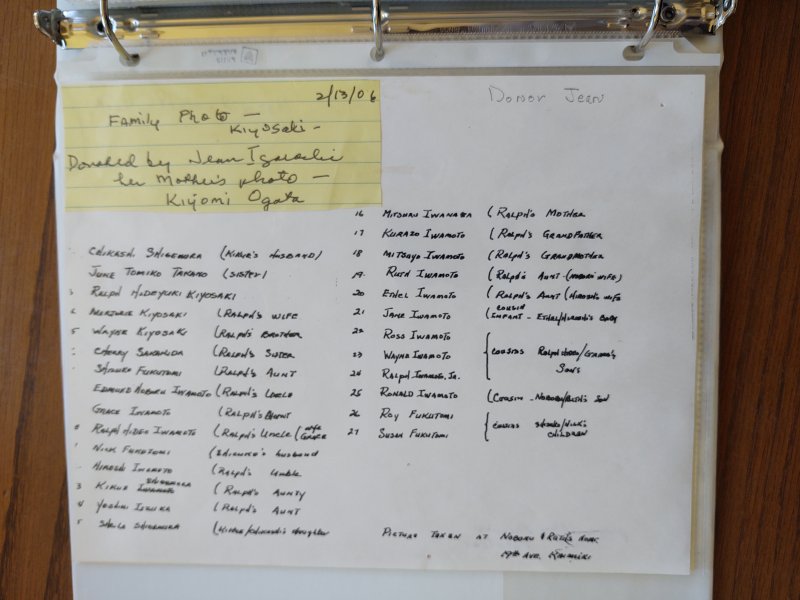 2/13/06
Family Photo —
Kiyosaki —
Donated by Jean Igarashi
her Mother's photo —
Kiyomi Ogata
Donor Jean
Chikashi Shigemura (Kikue's Husband)
June Tomiko Takano (Sister)
3 Ralph Hideyuki Kiyosaki
4 Marjorie Kiyosaki (Ralph's Wife
5 Wayne Kiyosaki (Ralph's Brother
Cherry (Ralph's Sister
Shizuko Fukutomi (Ralph's Aunt
Edmund Noboru Iwamoto (Ralph's Uncle
Grace Iwamoto (Ralph's Aunt
0 Ralph Hideo Iwamoto (Ralph's Uncle (wife Grace
Nick Fukutomi (Shizuko's husband
Hiroshi Iwamoto (Ralph's Uncle
3 Kikue Shigemura (Ralph's Aunty
4 Yoshimi (Ralph's Aunt
5 Sheila Shigemura (Kikue/Chikashi's daughter
16 Iwanaga (Ralph's Mother
17 Kurazo Iwamoto (Ralph's Grandfather
18 Mitsuyo Iwamoto (Ralph's Grandmother
19 Ruth Iwamoto (Ralph's Aunt (Noboru wife)
20 Ethel Iwamoto (Ralph's Aunt (Hiroshi's wife
21 Jane Iwamoto (cousin
Infant - Ethel/Hiroshi's Baby
22 Ross Iwamoto
23 Wayne Iwamoto { cousins Ralph Hideo/Grace's
24 Ralph Iwamoto, Jr. Sons
25 Ronald Iwamoto (Cousin - Noboru/Ruth's Son
26 Roy Fukutomi { cousins Shizuko/Nick's
27 Susan Fukutomi Children
Picture Taken at Noboru & Ruth's Home
19th Ave. Kaimuki